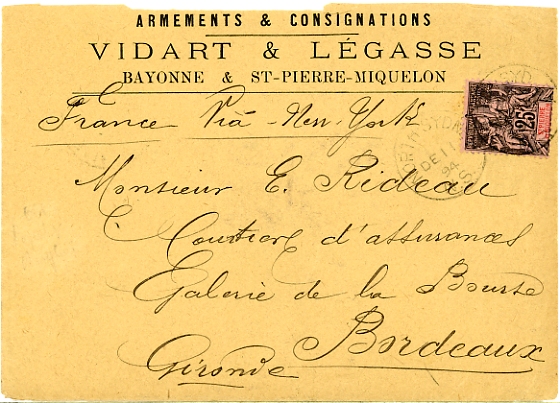 ARMEMENTS & CONSIGNATIONS
VIDART & LÉGASSE
BAYONNE & ST-PIERRE-MIQUELON
France Viâ-New-York
25
NORTH SYDNEY
DE 11
94
Monsieur E. Rideau
Courtier d'assurances
Galerie de la Bourse
Bordeaux
Gironde